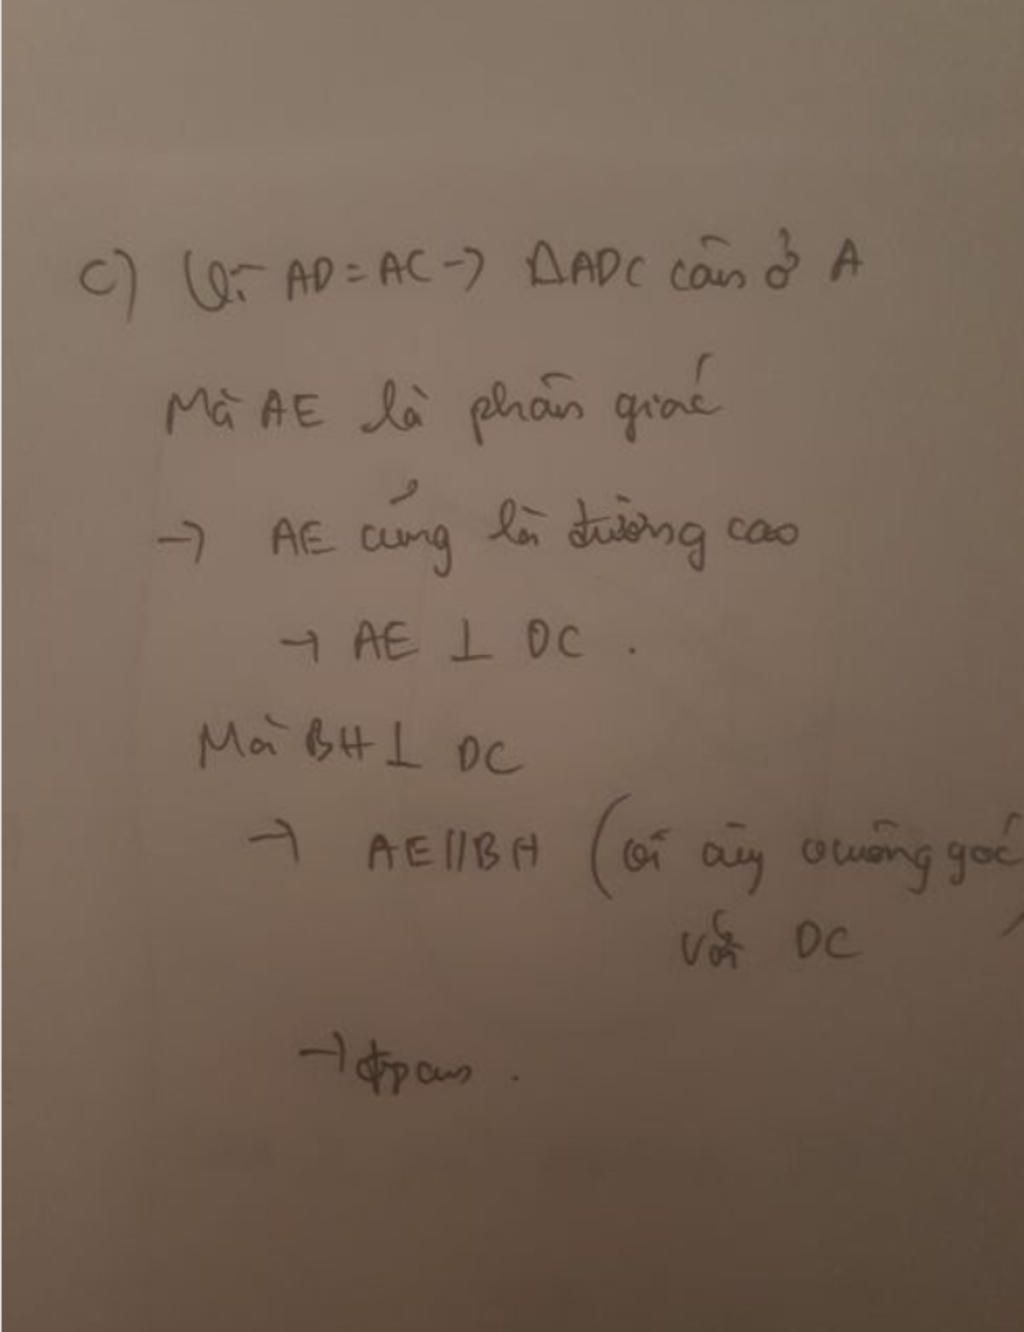 c) Vì AD = AC → ΔADC cân ở A
Mà AE là phân giác
→ AE cũng là đường cao
→ AE ⊥ DC .
Mà BH ⊥ DC
→ AE // BH (vì cùng vuông góc
với DC )
→ đpcm .